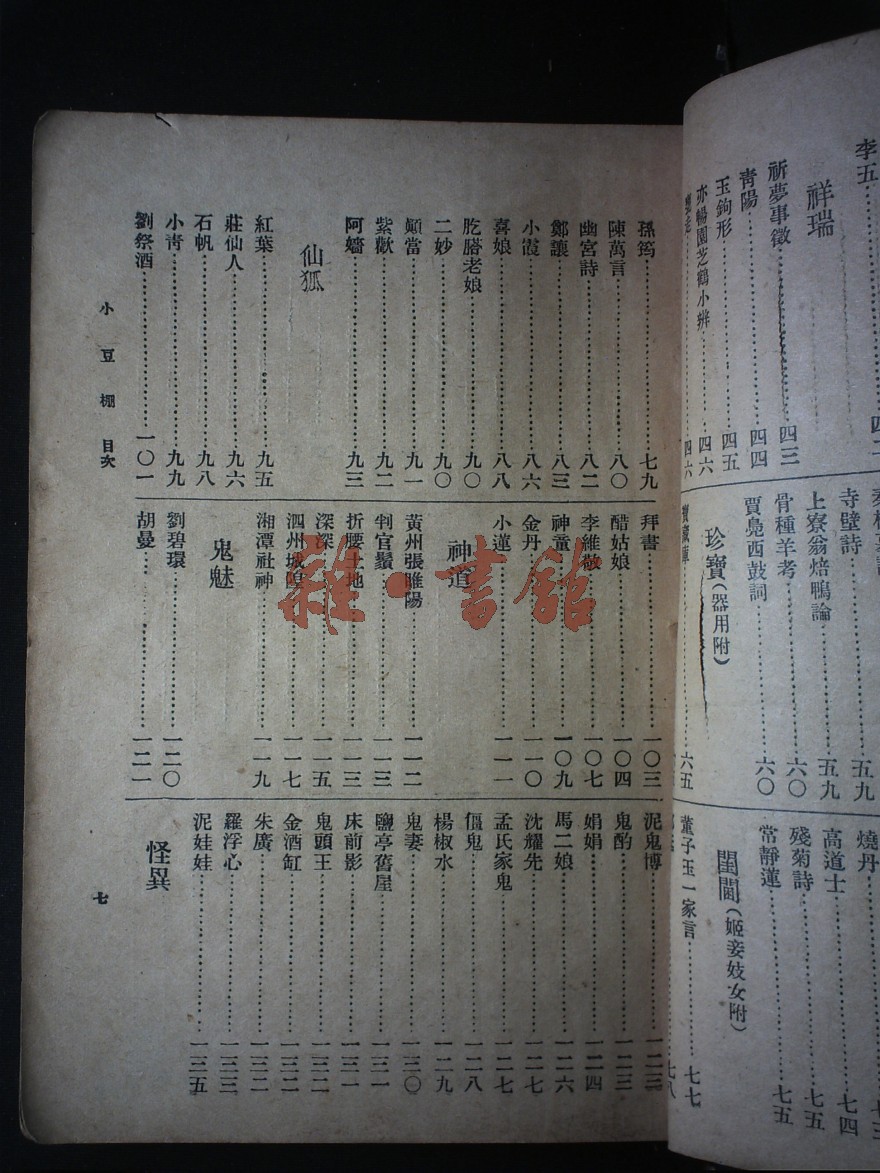 李五
祥瑞
祈夢事徵……四三
青陽……四四
玉鉤形……四五
亦暢園芝鶴小辨……四六
四六
寺壁詩……五九
上寮翁焙鴨論……五九
骨種羊考……六〇
賈鳧西鼓詞……六〇
珍寶（器用附）
寶藏庫……六五
燒丹
高道士……七四
殘菊詩……七五
常靜蓮……七五
閨閫（姬妾妓女附）
董子玉一家言……七七
七八
孫筠……七九
陳萬言……八〇
幽宮詩……八二
鄭讓……八三
小霞……八六
喜娘……八八
肐膯老娘……九〇
二妙……九〇
顛當……九一
紫歡……九二
阿嬙……九三
仙狐
紅葉……九五
莊仙人……九六
石帆……九八
小青……九九
劉祭酒……一〇一
拜書……一〇三
醋姑娘……一〇四
李維敬……一〇七
神童……一〇九
金丹……一一〇
小蓮……一一一
神道
黃州張睢陽……一一二
判官鬚……一一三
折腰土地……一一三
深深……一一五
泗州城隍……一一七
湘潭社神……一一九
鬼魅
劉碧環……一二〇
胡曼……一二一
泥鬼博……一二三
鬼酌……一二三
娟娟……一二四
馬二娘……一二六
沈耀先……一二七
孟氏家鬼……一二七
傴鬼……一二八
楊椒水……一二九
鬼妻……一三〇
鹽亭舊屋……一三一
床前影……一三一
鬼頭王……一三二
金酒缸……一三二
朱廣……一三二
羅浮心……一三三
泥娃娃……一三五
怪異
小豆棚 目次
七
雜·書館